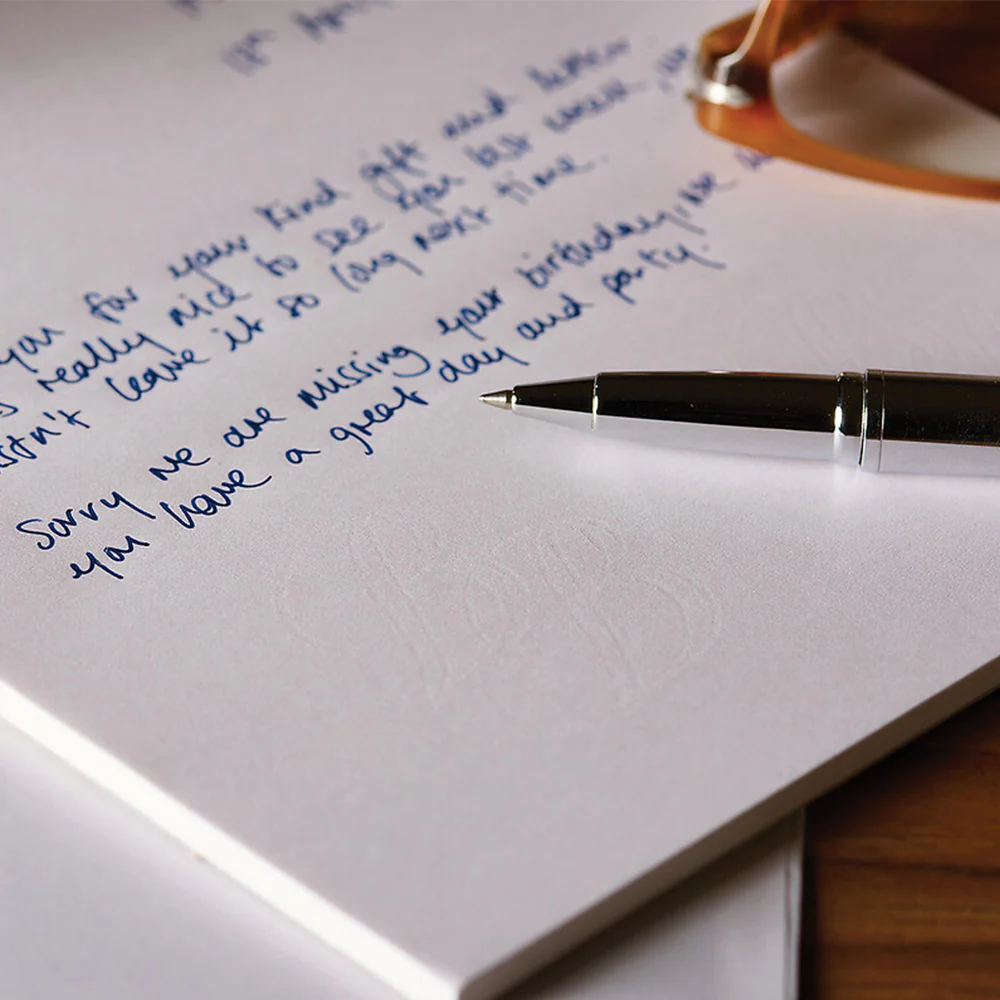 you for your kind gift and letter
really nice to see you last week, we
leave it so long next time.
Sorry we are missing your birthday, we
you have a great day and party.